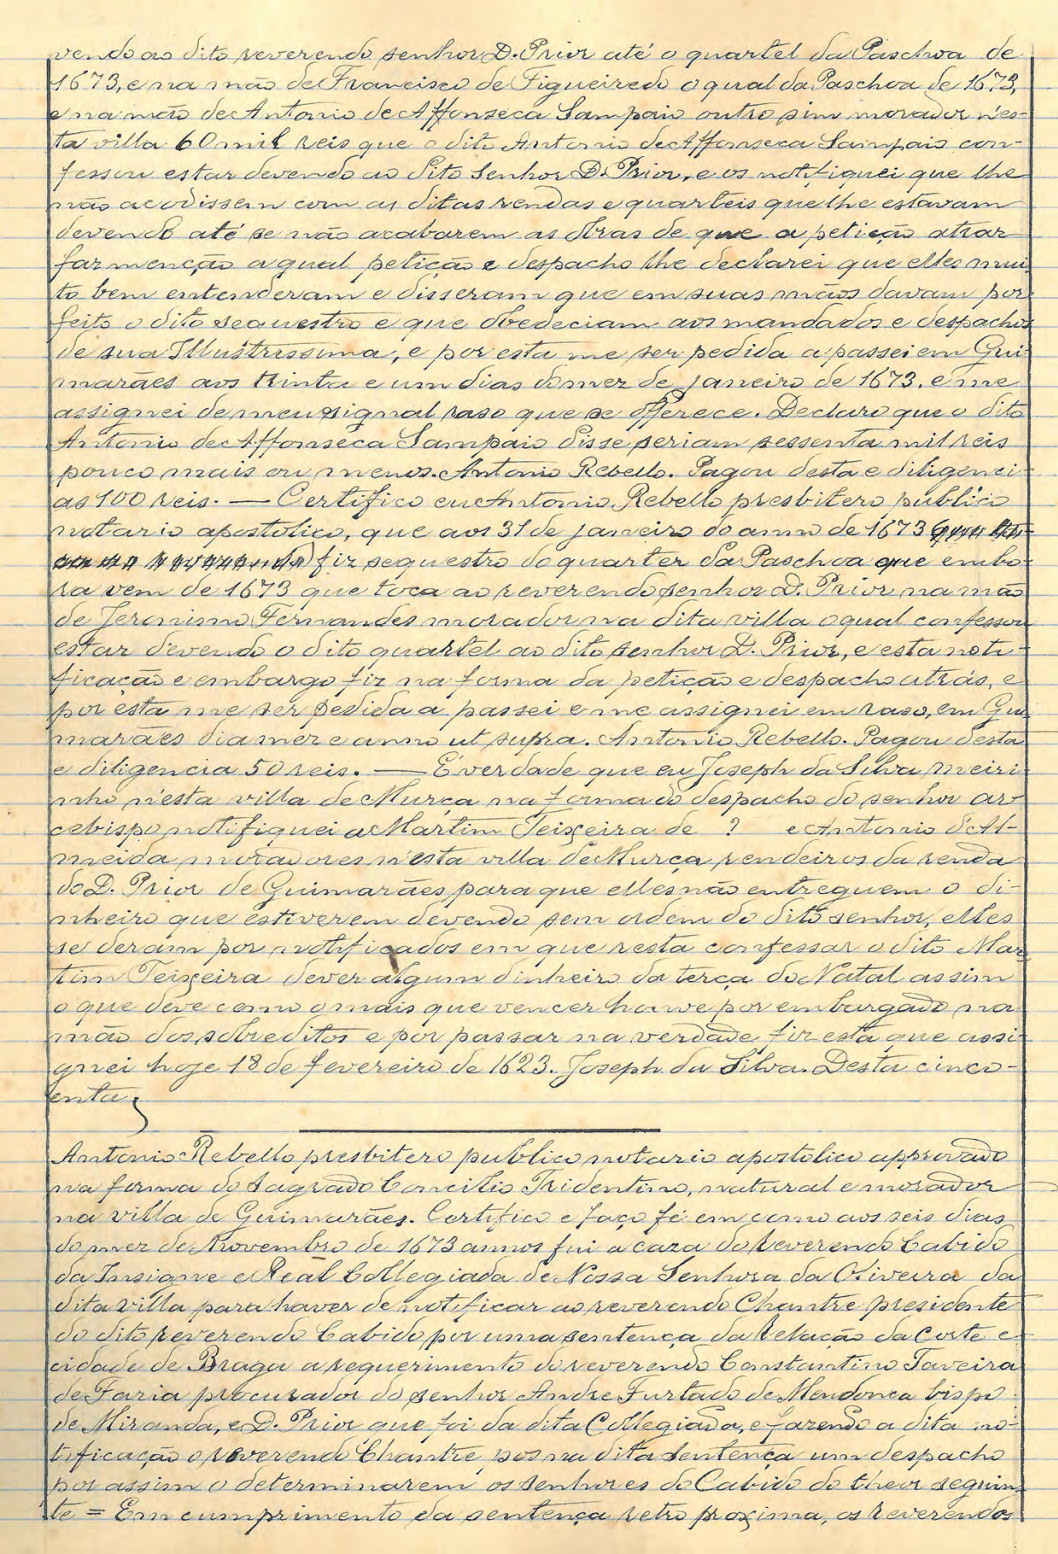 vendo ao dito reverendo senhor D. Prior até o quartel da Paschoa de
1673, e na mão de Francisco de Figueiredo o qual da Paschoa de 1673,
e na mão de Antonio de Affonseca Sampaio outro sim morador n'es-
ta villa 60 mil reis que o dito Antonio de Affonseca Sampaio con-
fessou estar devendo ao dito Senhor D. Prior, e os notifiquei que lhe
não acodissem com as ditas rendas e quarteis que lhe estavam
devendo até se não acabarem as obras de que a petição atraz
faz menção a qual petição e despacho lhe declarei que elles mui
to bem entenderam e disseram que em suas mãos davam por
feito o dito sequestro e que obedeciam aos mandados e despachos
de sua Illustrissima, e por esta me ser pedida a passei em Gui
marães aos trinta e um dias do mez de janeiro de 1673, e me
assignei de meu signal raso que se offerece. Declaro que o dito
Antonio de Affonseca Sampaio disse seriam sessenta mil reis
pouco mais ou menos. Antonio Rebello. Pagou desta e diligenci-
as 100 reis. — Certifico eu Antonio Rebello presbitero publico
notario apostolico, que aos 31 de janeiro do anno de 1673
fiz sequestro do quartel da Paschoa que embo-
ra vem de 1673 que toca ao reverendo senhor D. Prior na mão
de Jeronimo Fernandes morador na dita villa o qual confessou
estar devendo o dito quartel ao dito senhor D. Prior, e esta noti-
ficação e embargo fiz na forma da petição e despacho atrás, e
por esta me ser pedida a passei e me assignei em raso, em Gui
marães dia mez e anno ut supra. Antonio Rebello. Pagou desta
e diligencia 50 reis. — É verdade que eu Joseph da Silva meiri
nho n'esta villa de Murça na forma do despacho do senhor ar
cebispo notifiquei a Martim Teixeira de ? e Antonio d'Al-
meida moradores n'esta villa de Murça, rendeiros da renda
do D. Prior de Guimarães para que elles não entreguem o di-
nheiro que estiverem devendo sem ordem do dito senhor, elles
se deram por notificados em que resta confessar o dito Mar
tim Teixeira dever algum dinheiro da terça do Natal assim
o que deve como o mais que vencer houve por embargado na
mão dos sobreditos e por passar na verdade fiz esta que assi
gnei hoje 18 de fevereiro de 1623. Joseph da Silva. Desta cinco-
enta.
Antonio Rebello presbitero publico notario apostolico approvado
na forma do Sagrado Concilio Tridentino, natural e morador
na villa de Guimarães. Certifico e faço fé em como aos seis dias
do mez de Novembro de 1673 annos fui a caza do Reverendo Cabido
da Insigne e Real Collegiada de Nossa Senhora da Oliveira da
dita villa para haver de notificar ao reverendo Chantre presidente
do dito reverendo Cabido por uma sentença da Relação da Corte e
cidade de Braga a requerimento do reverendo Constantino Taveira
de Faria procurador do senhor Andre Furtado de Mendonca bispo
de Miranda, e D. Prior que foi da dita Collegiada, e fazendo a dita no-
tificação o reverendo Chantre, pos na dita sentença um despacho
por assim o determinarem os senhores do Cabido do theor seguin
te = Em cumprimento da sentença retro proxima, os reverendos